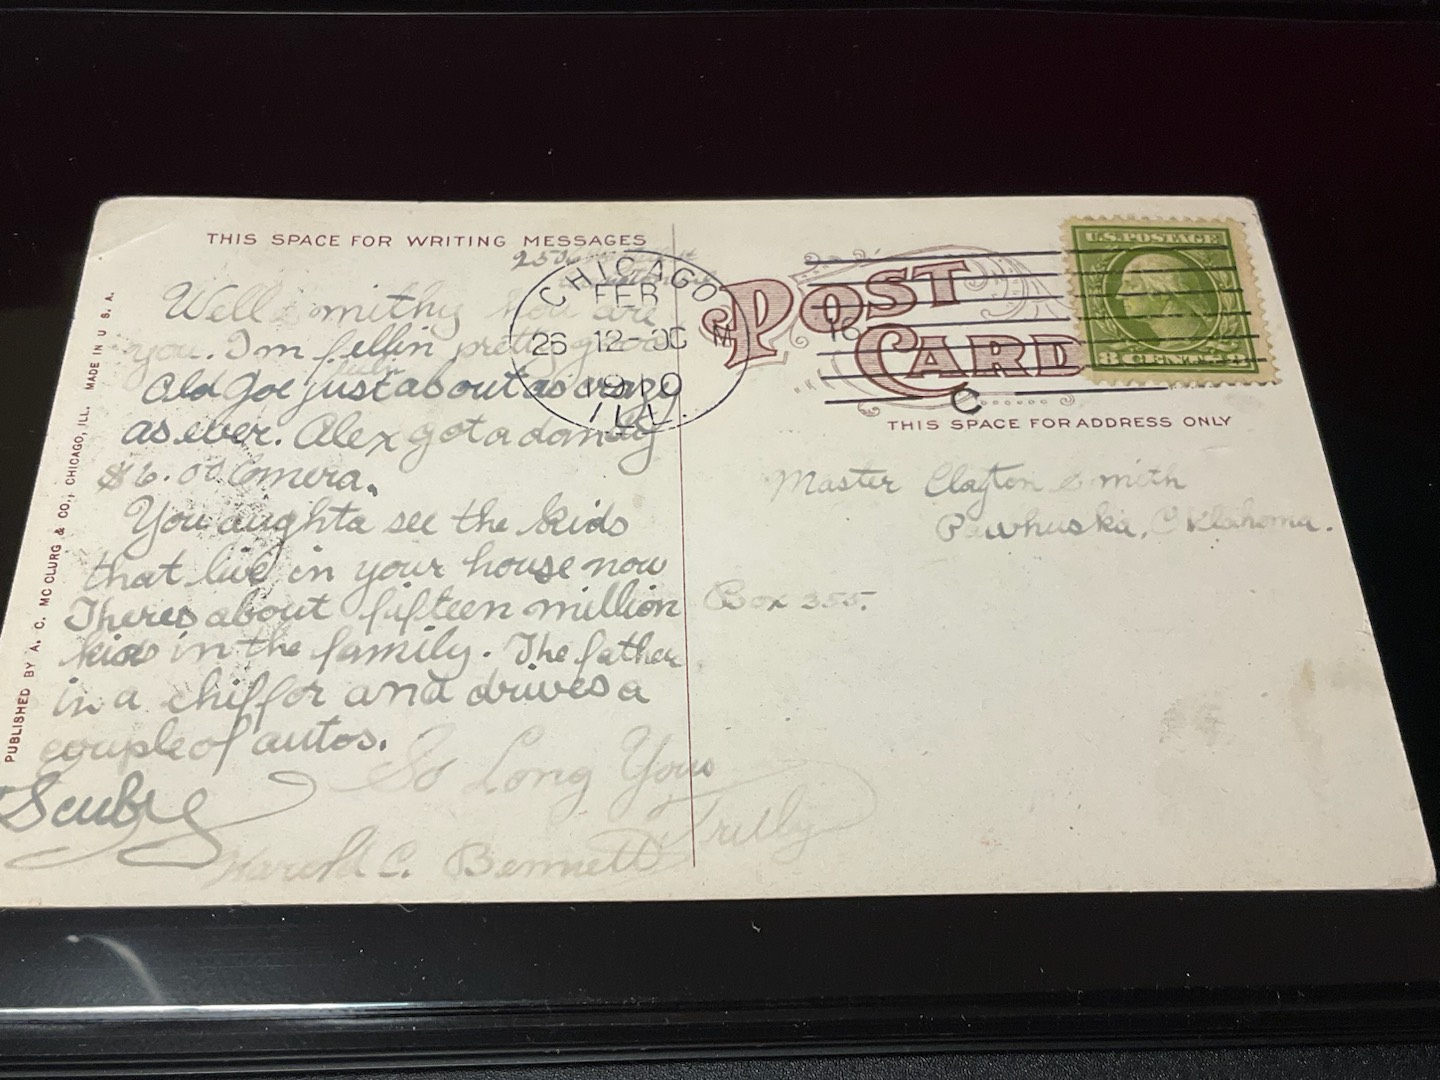 THIS SPACE FOR WRITING MESSAGES
Well Smithy how are
you. I'm fellin pretty good
Old Joe just about as crazy
as ever. Alex got a dandy
$6.00 Comera.
You aughta see the kids
that live in your house now
Theres about fifteen million
kids in the family. The father
in a chiffor and drives a
couple of autos.
So Long Yours
Truly
Harold C. Bennett
PUBLISHED BY A. C. MC CLURG & CO., CHICAGO, ILL. MADE IN U S A.
CHICAGO
FEB
26 12-M
1910
ILL.
POST
CARD
C
U.S.POSTAGE
THIS SPACE FOR ADDRESS ONLY
Master Clayton Smith
Pawhuska, Oklahoma.
Box 355.